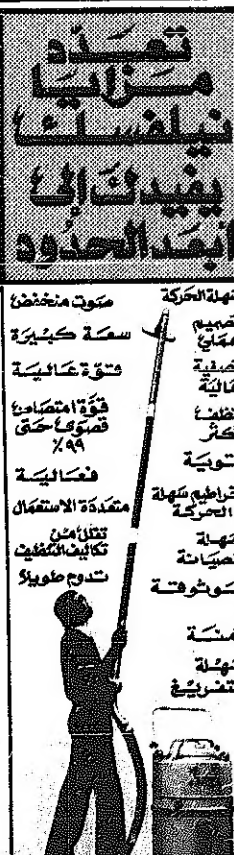 تعدّد
مزايا
نيلفسك
يفيدك إلى
أبعد الحدود
سهلة الحركة
تصميم
عملي
تصفية
عالية
تنظف
أكثر
قوية
خراطيم سهلة
الحركة
سهلة
الصيانة
موثوقة
سهلة
التفريغ
صوت منخفض
سعة كبيرة
قوّة عالية
قوّة امتصاص
قصوى حتى
٩٩٪
فعالية
متعددة الاستعمال
تقلل من
تكاليف التنظيف
تدوم طويلاً